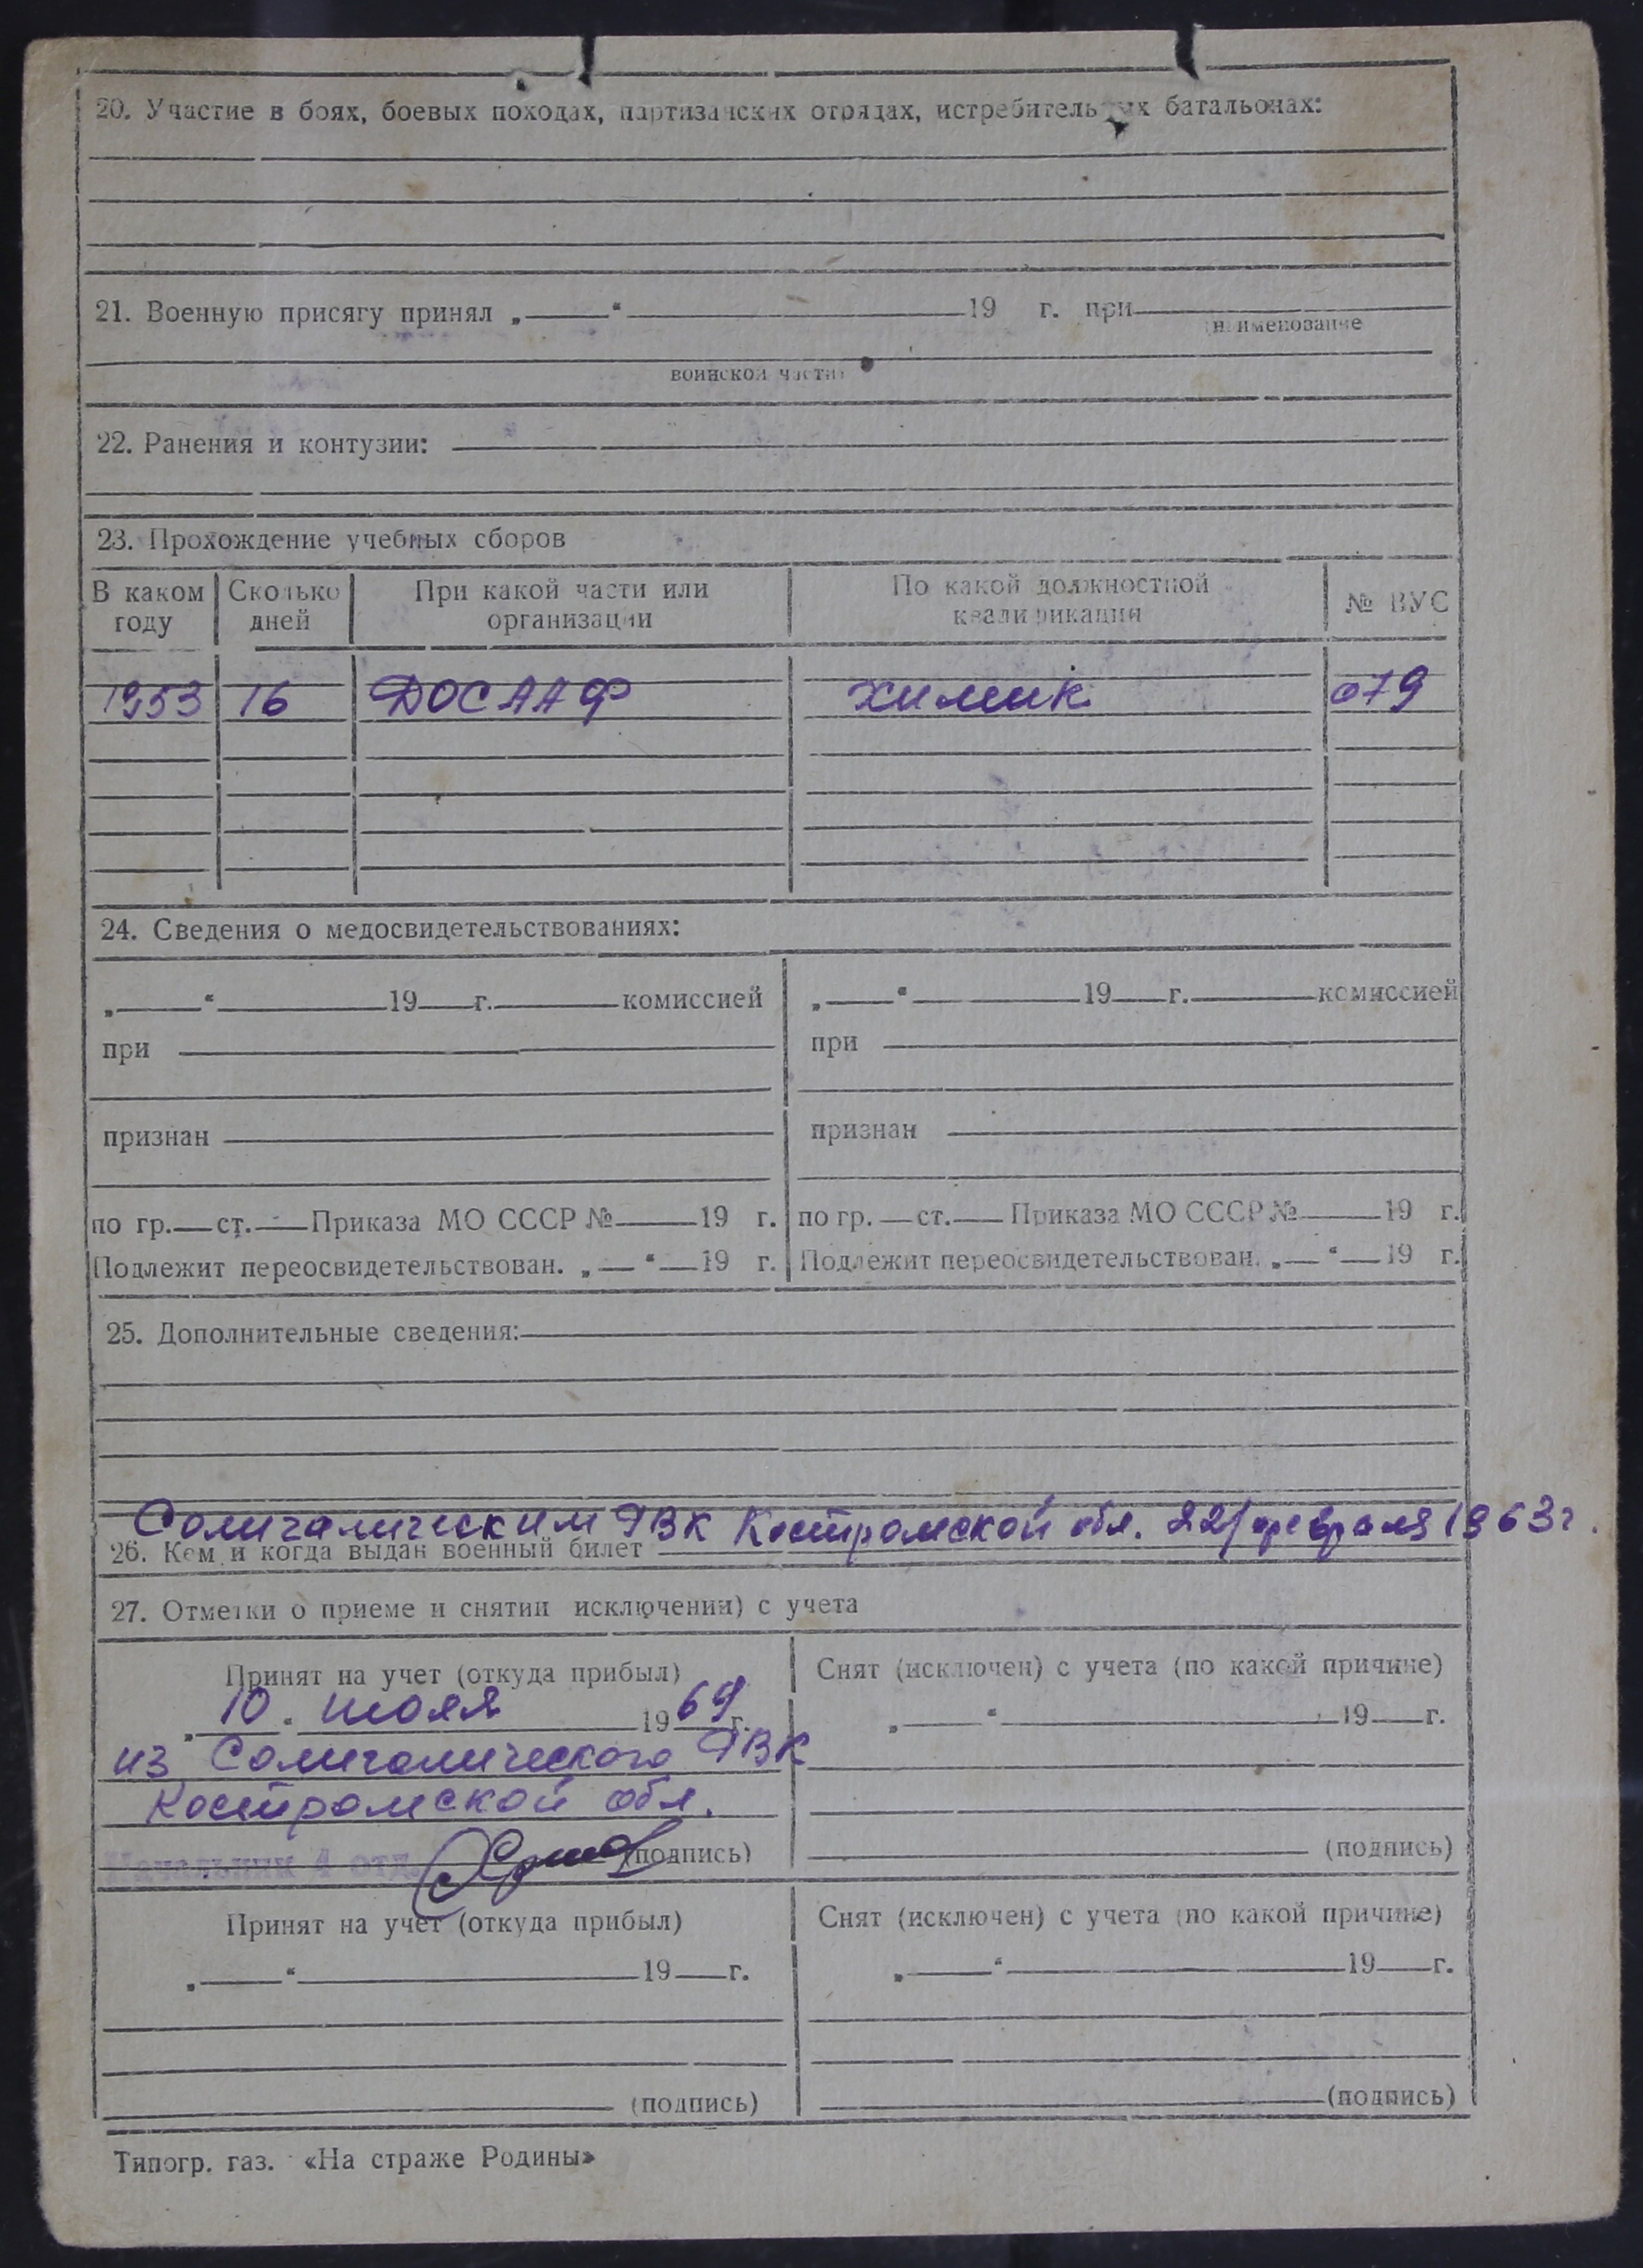 20. Участие в боях, боевых походах, партизанских отрядах, истребительных батальонах:
21. Военную присягу принял „ “ 19 г. при
(наименование
воинской части)
22. Ранения и контузии:
23. Прохождение учебных сборов
В каком году Сколько дней При какой части или организации По какой должностной квалификации № ВУС
1953 16 ДОСААФ химик 079
24. Сведения о медосвидетельствованиях:
„ “ 19 г. комиссией „ “ 19 г. комиссией
при при
признан признан
по гр. ст. Приказа МО СССР № 19 г. по гр. ст. Приказа МО СССР № 19 г.
Подлежит переосвидетельствован. „ “ 19 г. Подлежит переосвидетельствован. „ “ 19 г.
25. Дополнительные сведения:
Солигаличским РВК Костромской обл. 22/февраля 1963г.
26. Кем и когда выдан военный билет
27. Отметки о приеме и снятии исключении) с учета
Принят на учет (откуда прибыл) Снят (исключен) с учета (по какой причине)
„ 10 “ июля 1969 г. „ “ 19 г.
из Солигаличского РВК
Костромской обл.
Начальник 4 отд. (подпись) (подпись)
Принят на учет (откуда прибыл) Снят (исключен) с учета (по какой причине)
„ “ 19 г. „ “ 19 г.
(подпись) (подпись)
Типогр. газ. «На страже Родины»